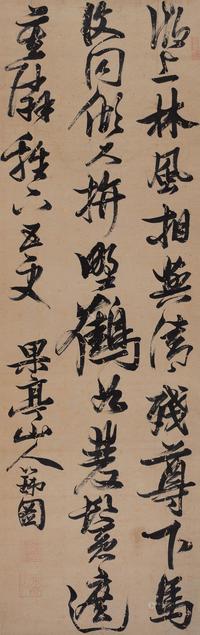 湖上林風相與清殘尊下馬
復同傾久拚野鶴如雙鬢遮
莫隣雞下五更 果亭山人瑞圖